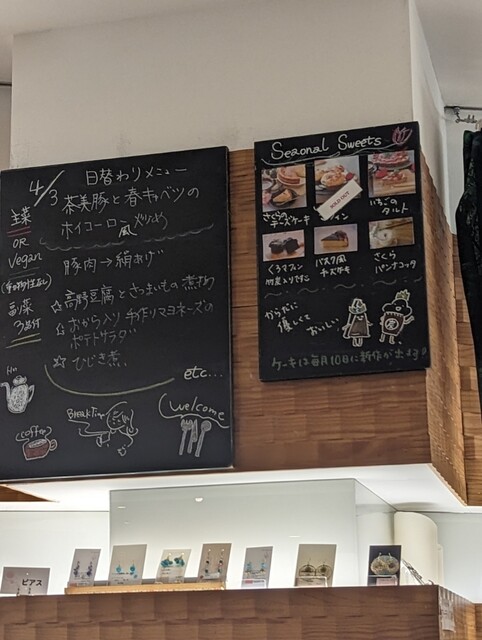 4/3 日替わりメニュー
主菜
茶美豚と春キャベツの
ホイコーロー風
OR
Vegan
豚肉→絹あげ
副菜
3品付
☆高野豆腐とさつまいも煮物
☆おから入り手作りマヨネーズの
ポテトサラダ
☆ひじき煮
etc...
Hot
Coffee
Break Time
Welcome
Seasonal Sweets
さくらの
チーズケーキ
SOLD OUT
いちごの
タルト
バスク風
チーズケーキ
さくら
パンナコッタ
からだに
優しくて
おいしい
ケーキは毎月10日に新作が出ます
ピアス